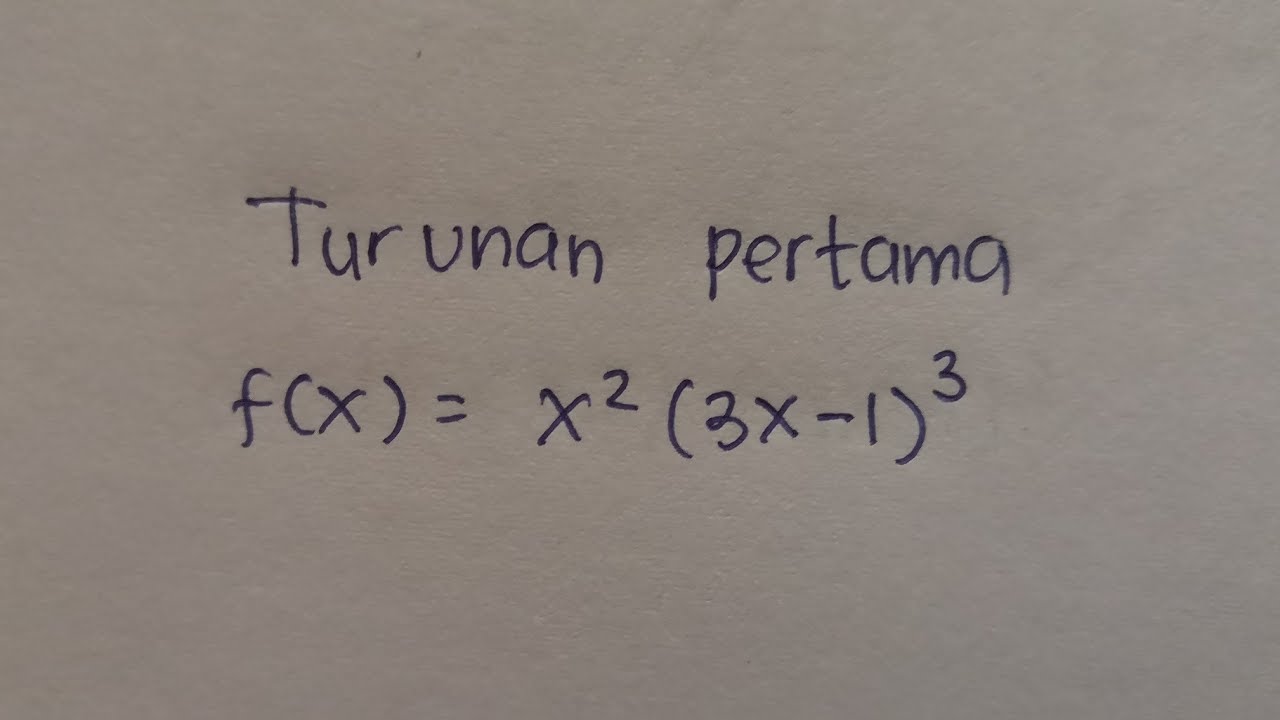 Turunan pertama
f(x) = x² (3x-1)³